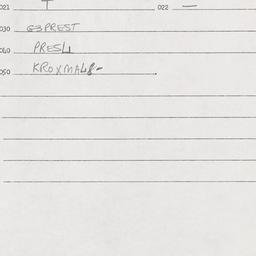 021 T 022 —
030 G3PREST
040 PRESL
050 KROXMAL8-